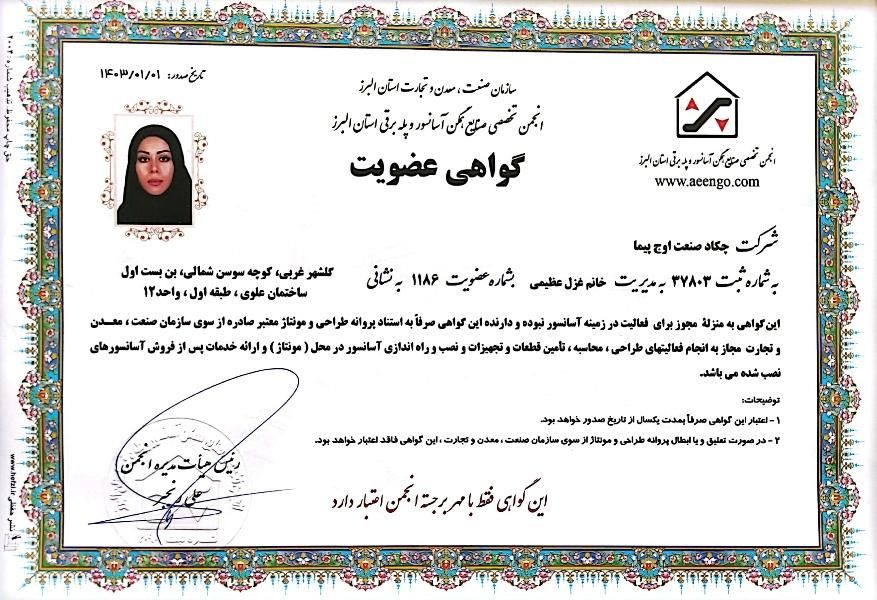 سازمان صنعت، معدن و تجارت استان البرز
انجمن تخصصی صنایع همگن آسانسور و پله برقی استان البرز
گواهی عضویت
تاریخ صدور: ۱۴۰۳/۰۱/۰۱
انجمن تخصصی صنایع همگن آسانسور و پله برقی استان البرز
www.aeengo.com
شرکت چکاد صنعت اوج پیما
به شماره ثبت ۳۷۸۰۳ به مدیریت خانم غزل عظیمی بشماره عضویت ۱۱۸۶ به نشانی
گلشهر غربی، کوچه سوسن شمالی، بن بست اول
ساختمان علوی، طبقه اول، واحد۱۲
این گواهی به منزلهٔ مجوز برای فعالیت در زمینه آسانسور نبوده و دارنده این گواهی صرفاً به استناد پروانه طراحی و مونتاژ معتبر صادره از سوی سازمان صنعت، معـدن
و تجارت مجاز به انجام فعالیتهای طراحی، محاسبه، تأمین قطعات و تجهیزات و نصب و راه اندازی آسانسور در محل (مونتاژ) و ارائه خدمات پس از فروش آسانسورهای
نصب شده می باشد.
توضیحات:
۱- اعتبار این گواهی صرفاً بمدت یکسال از تاریخ صدور خواهد بود.
۲- در صورت تعلیق و یا ابطال پروانه طراحی و مونتاژ از سوی سازمان صنعت، معدن و تجارت، این گواهی فاقد اعتبار خواهد بود.
رئیس هیأت مدیره انجمن
علی رنجبر
این گواهی فقط با مهر برجسته انجمن اعتبار دارد